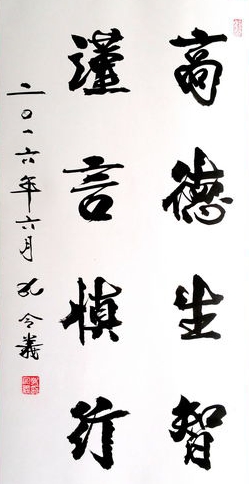 高德生智
謹言慎行
二〇一六年六月 孔令義